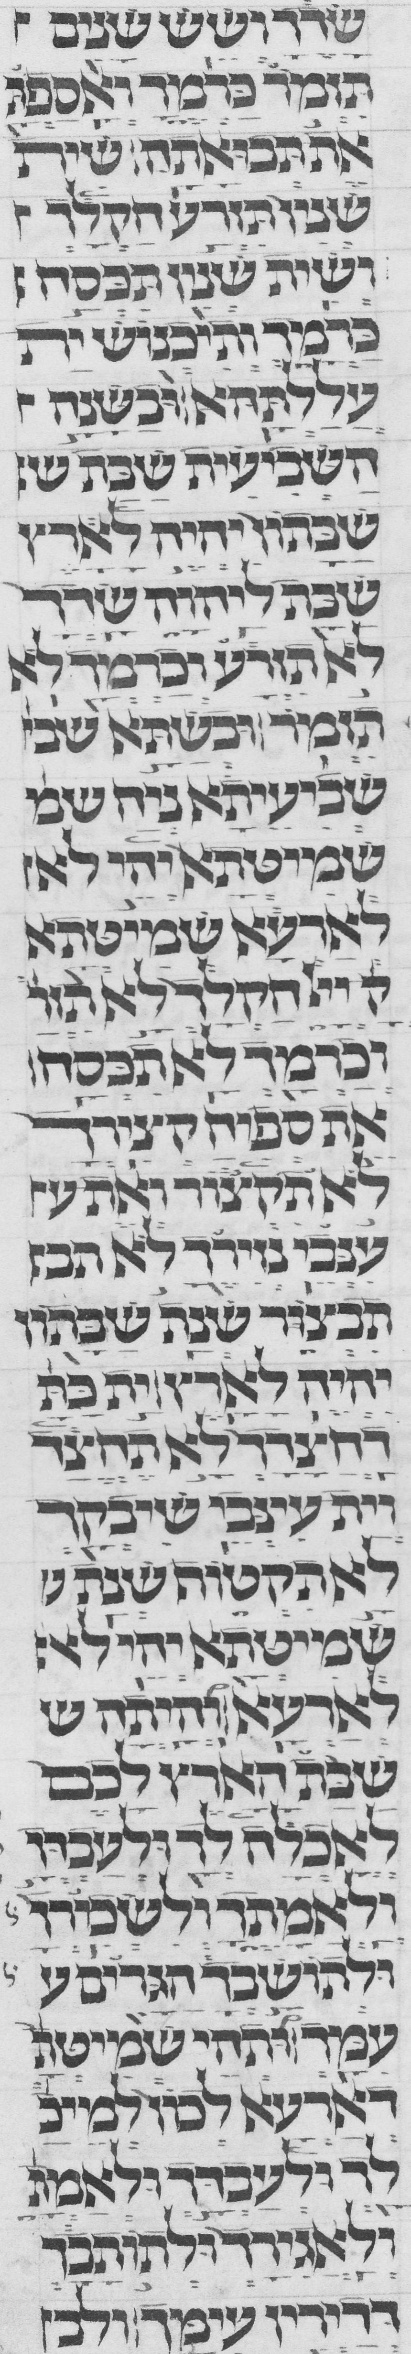 שדך ושש שנים ז
תזמר כרמך ואספת
את תבואתה שית
שנין תזרע חקלך ו
ושית שנין תכסח
כרמך ותיכנוש ית
עללתהא ובשנה ה
השביעית שבת ש
שבתון יהיה לארץ
שבת ליהוה שדך
לא תזרע וכרמך לא
תזמר ובשתא שבי
שביעיתא ניח שמ
שמיטתא יהי לא
לארעא שמיטתא
ק ייי חקלך לא תזר
וכרמך לא תכסח
את ספיח קצירך
לא תקצור ואת ע
ענבי נזירך לא תב
תבצור שנת שבתון
יהיה לארץ ית כת
דחצדך לא תחצד
וית עינבי שיבקך
לא תקטוף שנת ש
שמייטתא יהי לא
לארעא והיתה ש
שבת הארץ לכם
לאכלה לך ולעבדך
ולאמתך ולשכירך
ולתושבך הגרים ע
עמך ותהי שמיטת
דארעא לכון למיכ
לך ולעבדך ולאמת
ולאגירך ולתותבך
דדירין עימך ולב